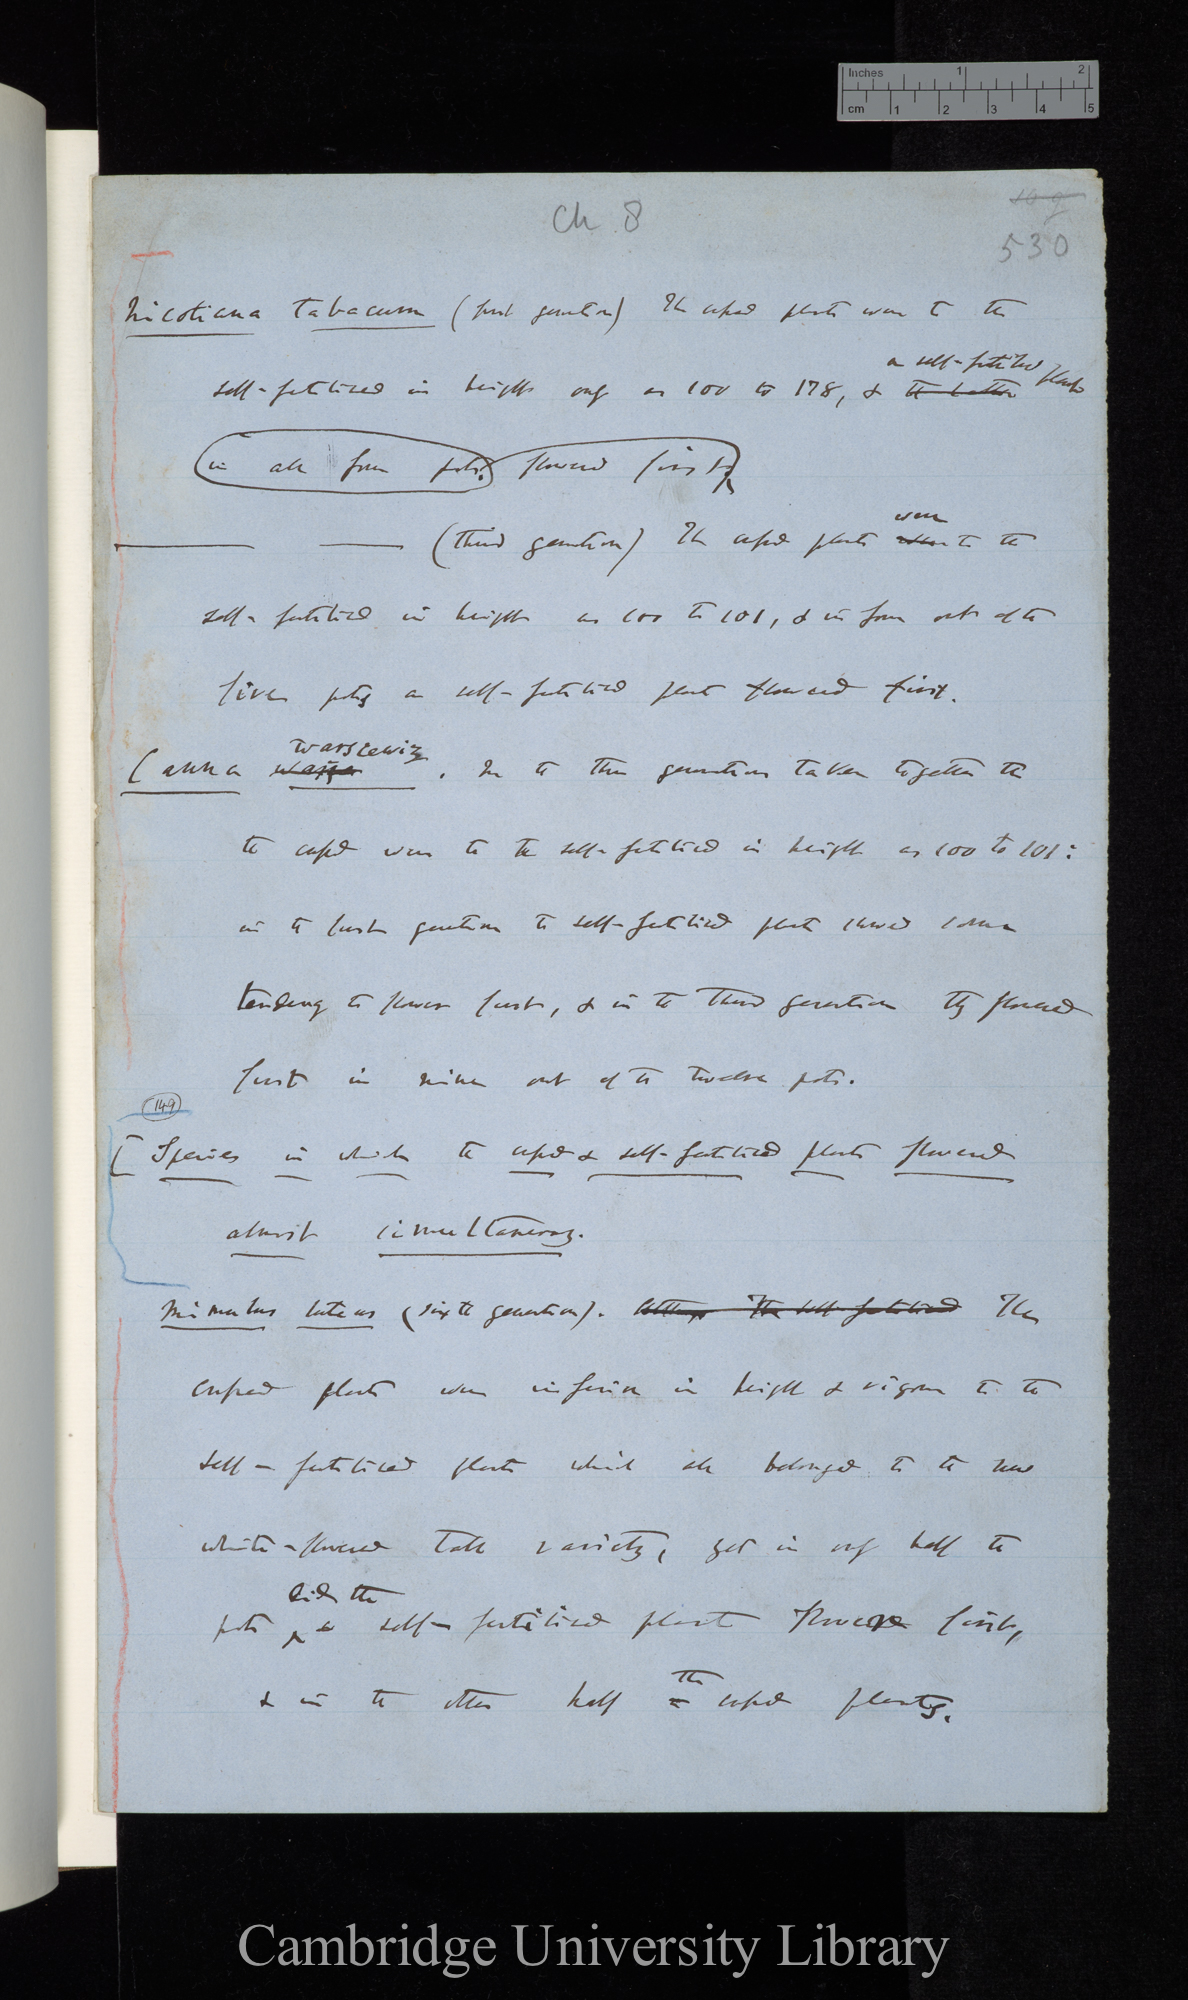 Inches 1 2
cm 1 2 3 4 5
Ch 8
530
Nicotiana tabacum (first generation) The crossed plants were to the
self-fertilised in height only as 100 to 178, & the latter
a self-fertilised plant
in all four pots. flowered first
(third generation) The crossed plants were to the
self-fertilised in height as 100 to 101, & in four out of the
five pots a self-fertilised plant flowered first.
Canna warscewiczi. In the three generations taken together the
the crossed were to the self-fertilised in height as 100 to 101:
in the first generation the self-fertilised plants showed some
tendency to flower first, & in the third generation they flowered
first in nine out of the twelve pots.
149
[Species in which the crossed & self-fertilised plants flowered
almost simultaneously.
Mimulus luteus (sixth generation). The self-fertilised The
crossed plants were inferior in height & vigour to the
self-fertilised plants which all belonged to the new
white-flowered tall variety, yet in only half the
did the
pots self-fertilised plants flower first,
& in the other half the crossed plants.
Cambridge University Library